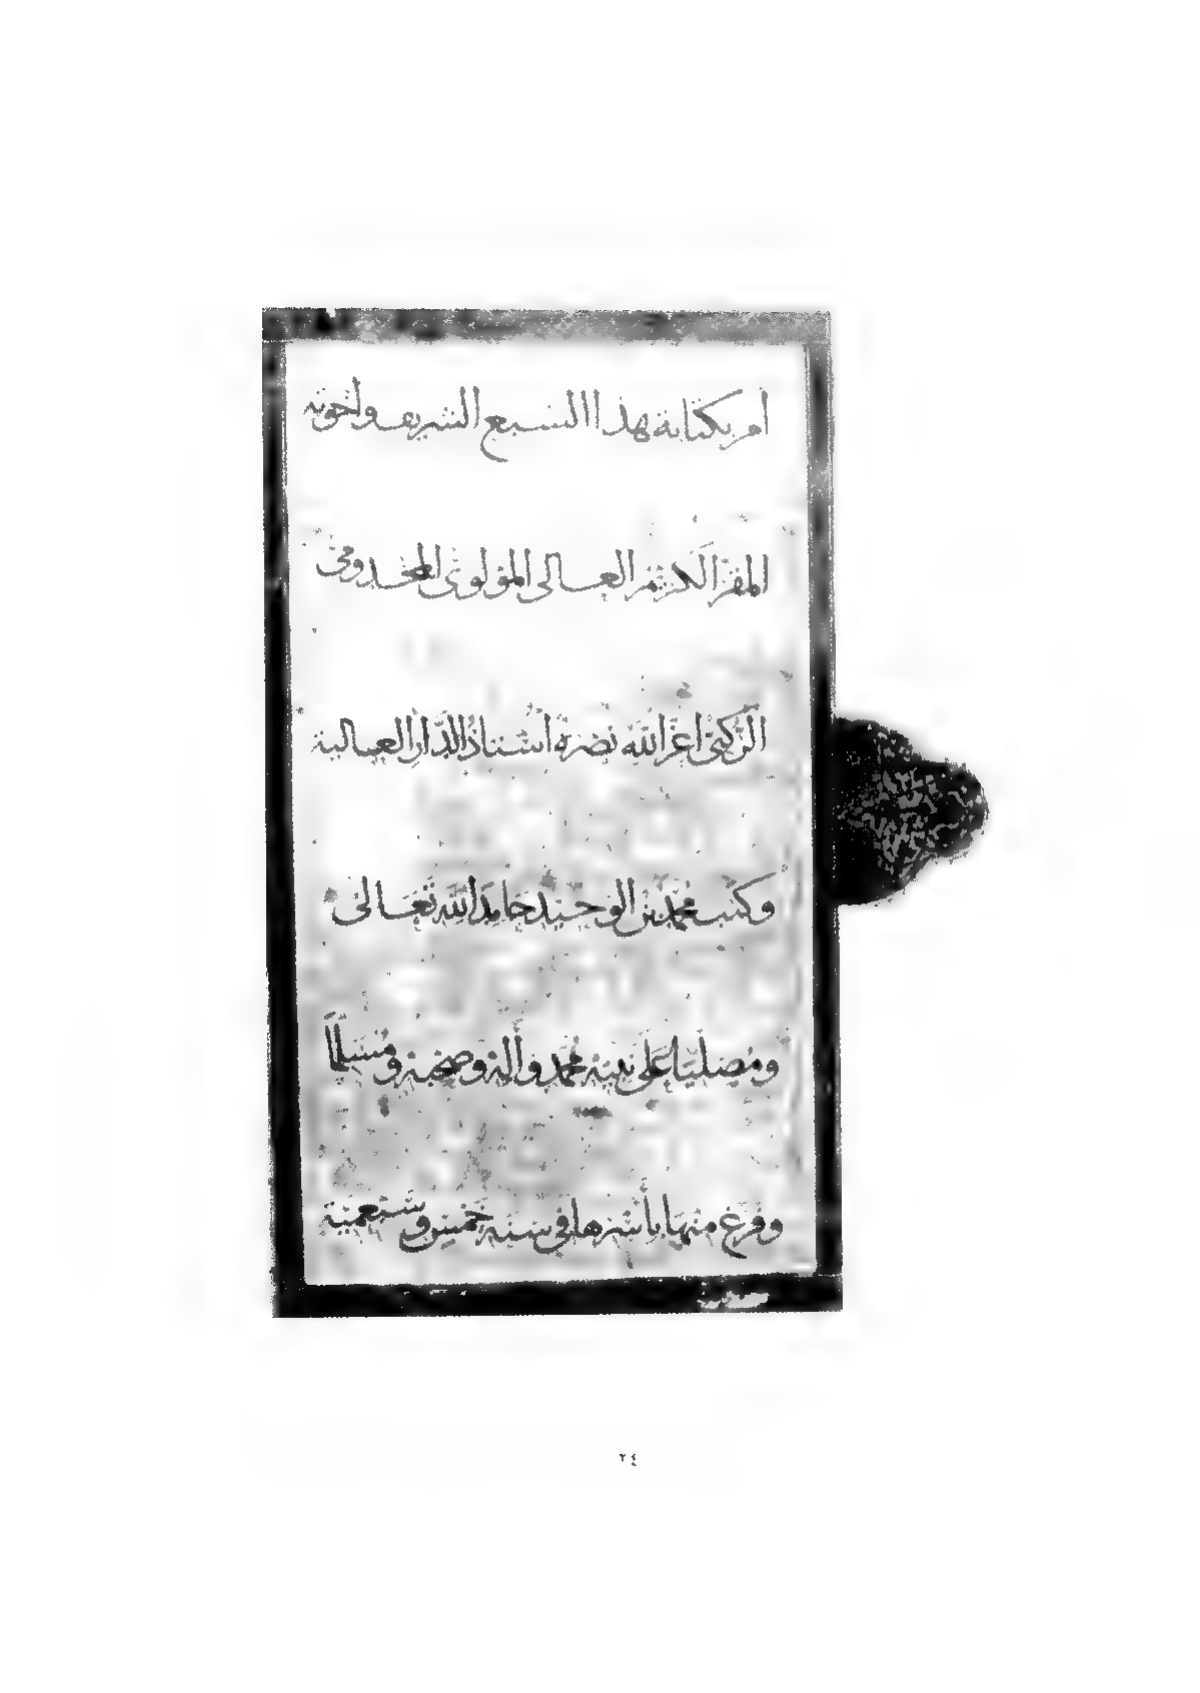 أمر بكتابة هذا السبع الشريف واخوته
المقر الكريم العالى المولوى المخدومى
الركنى أعز الله نصره أستاذ الدار العالية
وكتب محمد بن الوحيد حامدا لله تعالى
ومصليا على نبيه محمد وآله وصحبه ومسلما
وفرغ منها بأسرها فى سنة خمس وسبعمية
٢٤